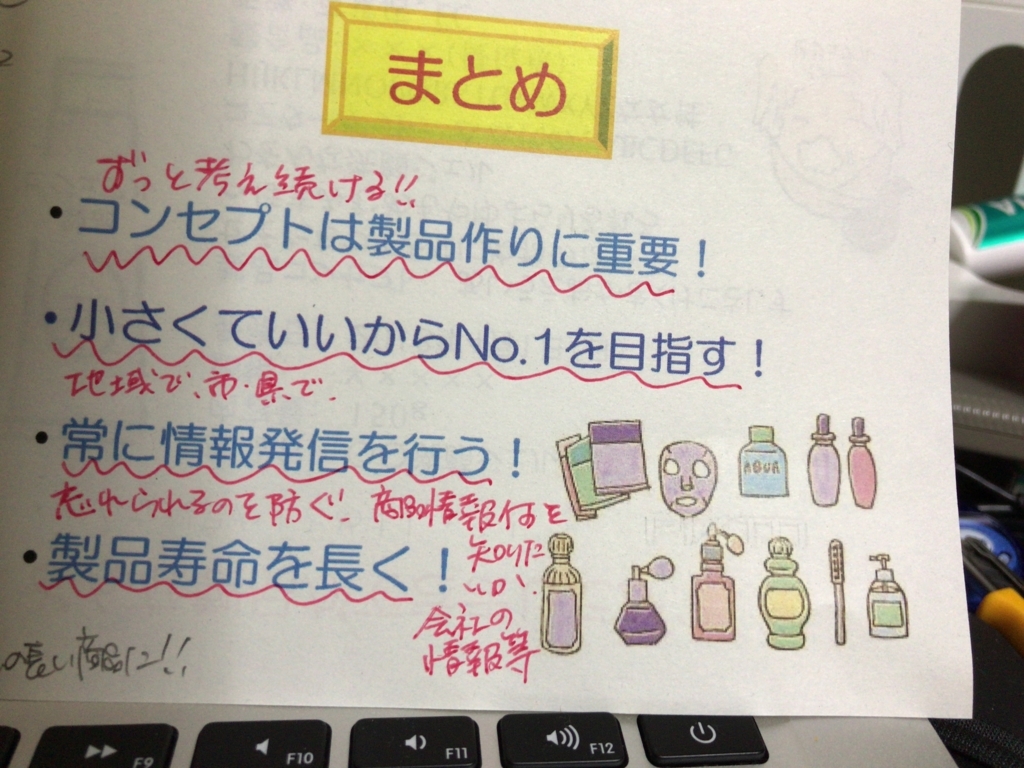 まとめ
ずっと考え続ける!!
・コンセプトは製品作りに重要！
・小さくていいからNo.1を目指す！
地域で、市・県で、
・常に情報発信を行う！
忘れられるのを防ぐ、商品情報何を
知りたいか、
・製品寿命を長く！
会社の
情報等
の長い商品に!!
AQUA
F9
F10
F11
F12